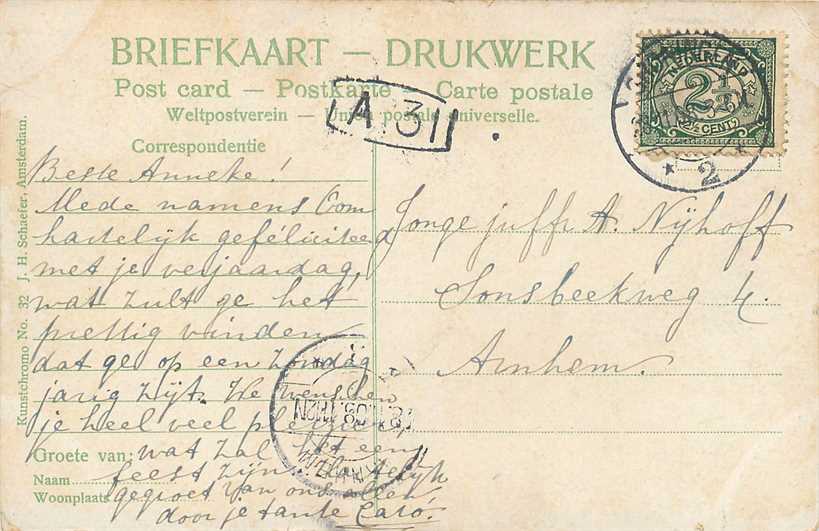 BRIEFKAART — DRUKWERK
Post card — Postkarte — Carte postale
Weltpostverein — Union postale universelle.
A 31
NEDERLAND
2½
2½ CENT
2
Correspondentie
Beste Anneke!
Mede namens Oom
hartelijk gefeliciteerd
met je verjaardag,
wat zult ge het
prettig vinden
dat ge op een Zondag
jarig zijt. We wenschen
je heel veel plezier,
Groete van: wat zal het een
Naam feest zijn. Hartelijk
Woonplaats gegroet van ons allen
door je tante Caró.
Jonge juffr A. Nijhoff
Sonsbeekweg 4.
Arnhem.
Kunstchromo No. 32 J. H. Schaefer, Amsterdam.